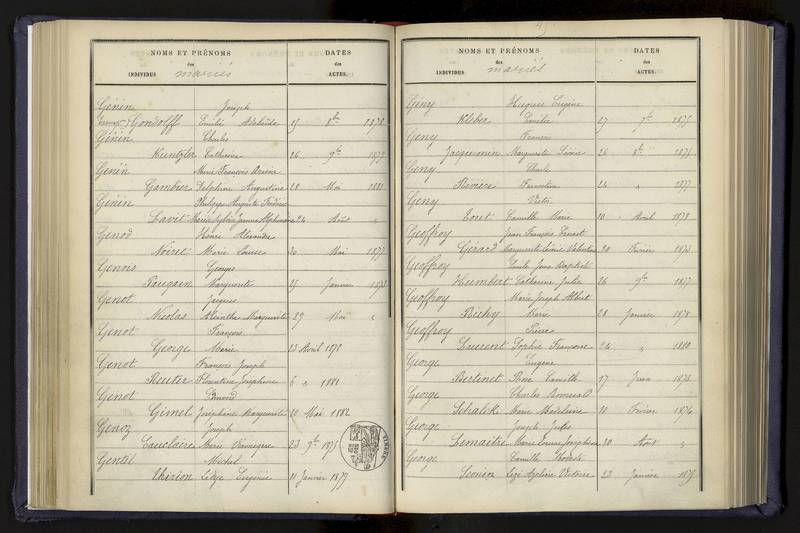 NOMS ET PRÉNOMS DATES
des des
INDIVIDUS mariés ACTES.
Génin Joseph
Gondolff Emilie Adélaïde 15 8bre 1878
Génin Charles
Kuntzler Catherine 26 9bre 1879
Genin Marie François Arsène
Gambier Delphine Augustine 28 Mai 1881
Génin Philippe Auguste Frédéric
Lavit Marie Sylvie Jeanne Alphonsine 24 Août "
Genod Henri Alexandre
Noirel Marie Louise 30 Mai 1877
Genois Georges
Paugain Marguerite 25 Janvier 1878
Genot Jacques
Nicolas Marguerite 29 Mai "
Genot François
George Marie 23 Avril 1879
Genot François Joseph
Reuter Florentine Joséphine 6 " 1881
Genot Edmond
Gimel Joséphine Marguerite 10 Mai 1882
Genoz Joseph
Cauclaire Marie Véronique 23 9bre 1875
Gentil Michel
Thirion Lidye Eugénie 11 Janvier 1879
TIMBRE
45
NOMS ET PRÉNOMS DATES
des des
INDIVIDUS mariés ACTES.
Gény Hugues Eugène
Kleber Emilie 27 7bre 1875
Geny François
Jacquemin Marguerite 26 8bre 1876
Geny Charles
Rivière 24 " 1877
Geny Victor
Tout Camille Marie 10 Avril 1878
Geoffroy Jean François Ernest
Gérard Marguerite Valentine 20 Février 1873
Geoffroy Emile Jean Baptiste
Humbert Catherine Julie 26 9bre 1877
Geoffroy Marie Joseph Albert
Bichy Marie 28 Janvier 1878
Geoffroy Pierre
Laurent Sophie Françoise 24 " 1880
George Eugène
Bertinet Rose Camille 17 Juin 1873
George Charles Romuald
Schalck Marie Madeleine 10 Février 1874
George Joseph Jules
Lemaitre Marie Joséphine 30 Août "
George Camille Modeste
Sconin Victoire 23 Janvier 1875